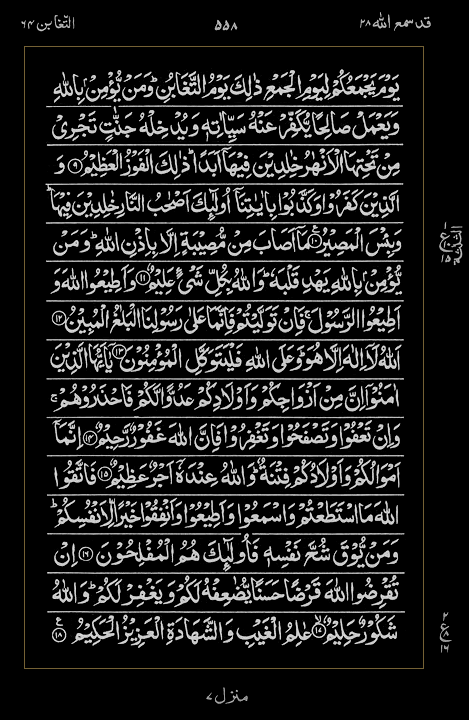 قد سمع الله ۲۸
۵۵۸
التغابن ۶۴
يَوۡمَ يَجۡمَعُكُمۡ لِيَوۡمِ الۡجَمۡعِ ذٰلِكَ يَوۡمُ التَّغَابُنِ ؕ وَمَنۡ يُّؤۡمِنۡۢ بِاللّٰهِ
وَيَعۡمَلۡ صَالِحًا يُّكَفِّرۡ عَنۡهُ سَيِّاٰتِهٖ وَيُدۡخِلۡهُ جَنّٰتٍ تَجۡرِىۡ
مِنۡ تَحۡتِهَا الۡاَنۡهٰرُ خٰلِدِيۡنَ فِيۡهَاۤ اَبَدًا ؕ ذٰلِكَ الۡفَوۡزُ الۡعَظِيۡمُ ﴿۹﴾ وَ
الَّذِيۡنَ كَفَرُوۡا وَكَذَّبُوۡا بِاٰيٰتِنَاۤ اُولٰٓئِكَ اَصۡحٰبُ النَّارِ خٰلِدِيۡنَ فِيۡهَا ؕ
وَبِئۡسَ الۡمَصِيۡرُ ﴿۱۰﴾ مَاۤ اَصَابَ مِنۡ مُّصِيۡبَةٍ اِلَّا بِاِذۡنِ اللّٰهِ ؕ وَمَنۡ
يُّؤۡمِنۡۢ بِاللّٰهِ يَهۡدِ قَلۡبَهٗ ؕ وَاللّٰهُ بِكُلِّ شَىۡءٍ عَلِيۡمٌ ﴿۱۱﴾ وَاَطِيۡعُوا اللّٰهَ وَ
اَطِيۡعُوا الرَّسُوۡلَ ۚ فَاِنۡ تَوَلَّيۡتُمۡ فَاِنَّمَا عَلٰى رَسُوۡلِنَا الۡبَلٰغُ الۡمُبِيۡنُ ﴿۱۲﴾
اَللّٰهُ لَاۤ اِلٰهَ اِلَّا هُوَ ؕ وَعَلَى اللّٰهِ فَلۡيَتَوَكَّلِ الۡمُؤۡمِنُوۡنَ ﴿۱۳﴾ يٰۤاَيُّهَا الَّذِيۡنَ
اٰمَنُوۡۤا اِنَّ مِنۡ اَزۡوَاجِكُمۡ وَاَوۡلَادِكُمۡ عَدُوًّا لَّكُمۡ فَاحۡذَرُوۡهُمۡ ۚ
وَاِنۡ تَعۡفُوۡا وَتَصۡفَحُوۡا وَتَغۡفِرُوۡا فَاِنَّ اللّٰهَ غَفُوۡرٌ رَّحِيۡمٌ ﴿۱۴﴾ اِنَّمَاۤ
اَمۡوَالُكُمۡ وَاَوۡلَادُكُمۡ فِتۡنَةٌ ؕ وَاللّٰهُ عِنۡدَهٗۤ اَجۡرٌ عَظِيۡمٌ ﴿۱۵﴾ فَاتَّقُوا
اللّٰهَ مَا اسۡتَطَعۡتُمۡ وَاسۡمَعُوۡا وَاَطِيۡعُوۡا وَاَنۡفِقُوۡا خَيۡرًا لِّاَنۡفُسِكُمۡ ؕ
وَمَنۡ يُّوۡقَ شُحَّ نَفۡسِهٖ فَاُولٰٓئِكَ هُمُ الۡمُفۡلِحُوۡنَ ﴿۱۶﴾ اِنۡ
تُقۡرِضُوا اللّٰهَ قَرۡضًا حَسَنًا يُّضٰعِفۡهُ لَكُمۡ وَيَغۡفِرۡ لَكُمۡ ؕ وَاللّٰهُ
شَكُوۡرٌ حَلِيۡمٌ ﴿۱۷﴾ عٰلِمُ الۡغَيۡبِ وَالشَّهَادَةِ الۡعَزِيۡزُ الۡحَكِيۡمُ ﴿۱۸﴾ ع
ع
۱۵
۲
ع ۸
۱۶
منزل ۷